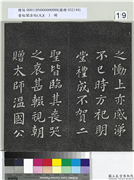 19
之慟上亦感涕
不已時方祀明
堂禮成不賀二
聖皆臨其喪哭
之哀甚輟視朝
贈太師溫國公